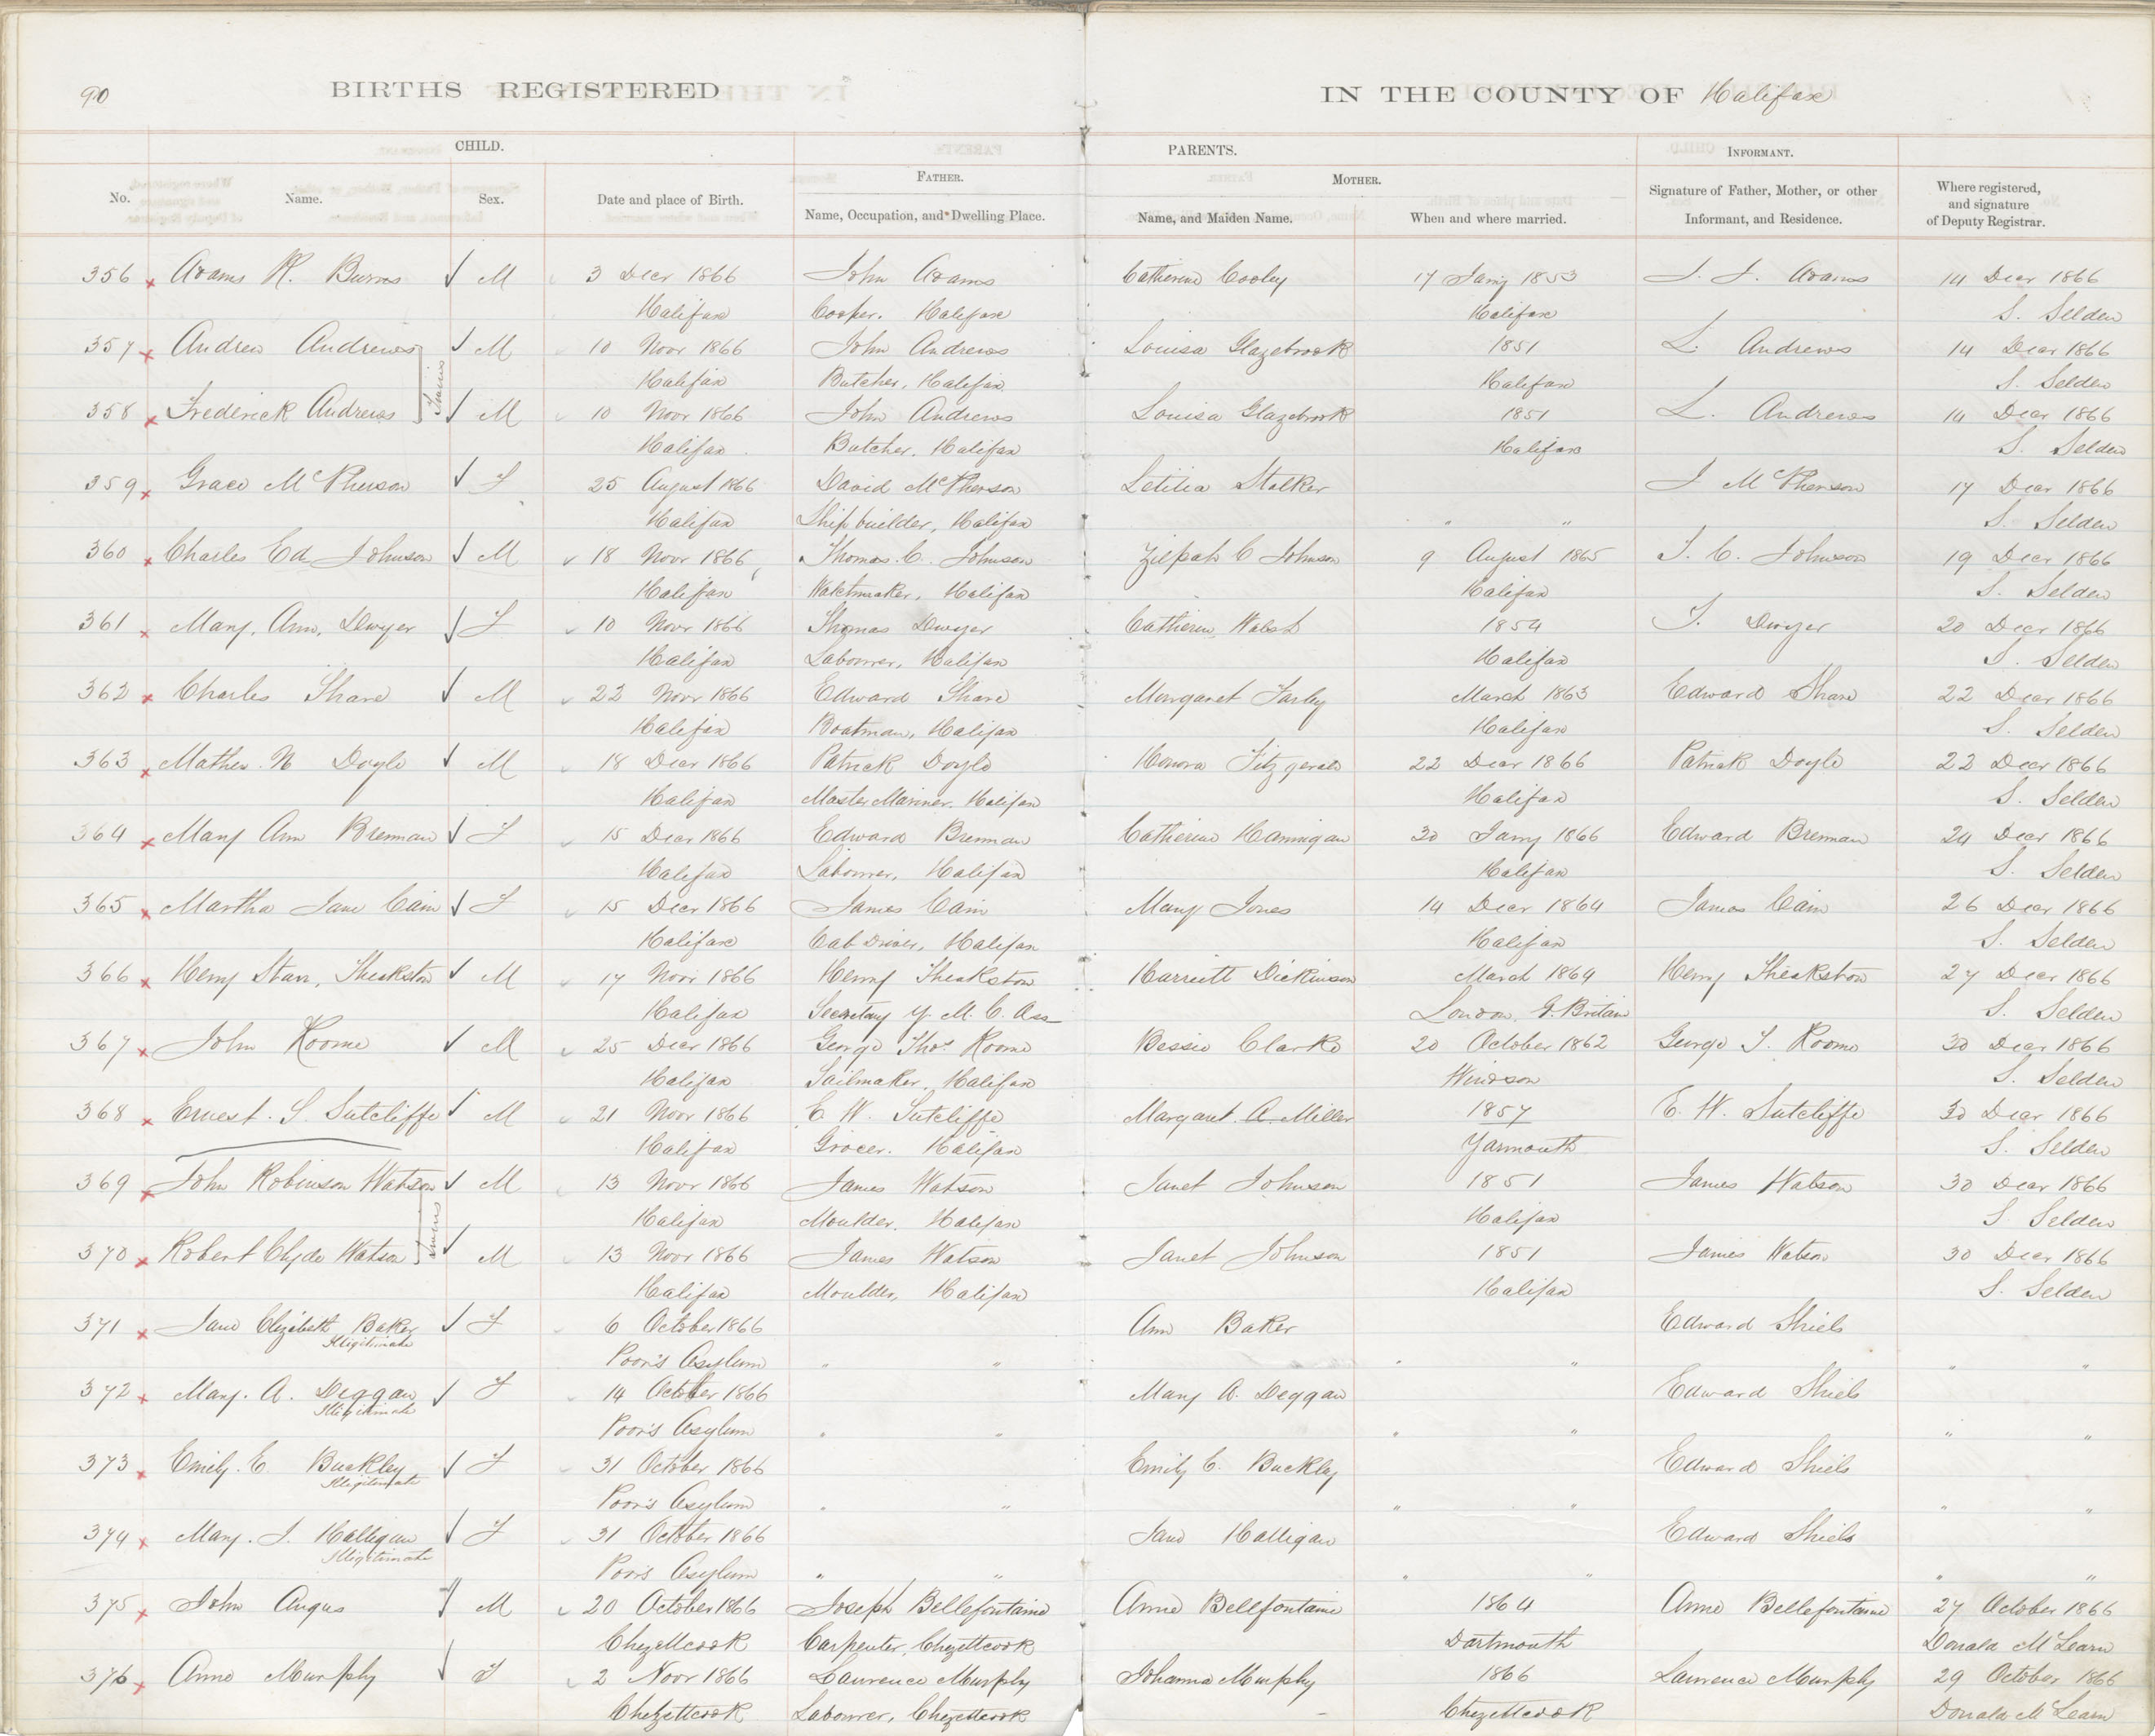 90
BIRTHS REGISTERED
IN THE COUNTY OF Halifax
CHILD.
PARENTS.
INFORMANT.
FATHER.
MOTHER.
No.
Name.
Sex.
Date and place of Birth.
Name, Occupation, and Dwelling Place.
Name, and Maiden Name.
When and where married.
Signature of Father, Mother, or other
Informant, and Residence.
Where registered,
and signature
of Deputy Registrar.
356 Adams R. Burns M 3 Decr 1866 John Adams Catherine Cooley 17 Jany 1853 J. J. Adams 14 Decr 1866
Halifax Cooper. Halifax Halifax S. Selden
357 Andrew Andrews M 10 Novr 1866 John Andrews Louisa Glazebrook 1851 L. Andrews 14 Decr 1866
Twins
Halifax Butcher, Halifax Halifax S. Selden
358 Frederick Andrews M 10 Novr 1866 John Andrews Louisa Glazebrook 1851 L. Andrews 14 Decr 1866
Halifax Butcher, Halifax Halifax S. Selden
359 Grace McPherson F 25 August 1866 David McPherson Letitia Stalker J McPherson 17 Decr 1866
Halifax Ship builder, Halifax " " S. Selden
360 Charles Ed Johnson M 18 Novr 1866 Thomas. C. Johnson Zilpah C Johnson 9 August 1865 T. C. Johnson 19 Decr 1866
Halifax Watchmaker, Halifax Halifax S. Selden
361 Mary. Ann. Dwyer F 10 Novr 1866 Thomas Dwyer Catherine Walsh 1854 T. Dwyer 20 Decr 1866
Halifax Labourer, Halifax Halifax S. Selden
362 Charles Share M 22 Novr 1866 Edward Share Margaret Farley March 1863 Edward Share 22 Decr 1866
Halifax Boatman, Halifax Halifax S. Selden
363 Mathew. N Doyle M 18 Decr 1866 Patrick Doyle Honora Fitzgerald 22 Decr 1866 Patrick Doyle 22 Decr 1866
Halifax Master Mariner. Halifax Halifax S. Selden
364 Mary Ann Brennan F 15 Decr 1866 Edward Brennan Catherine Hannigan 30 Jany 1866 Edward Brennan 24 Decr 1866
Halifax Labourer, Halifax Halifax S. Selden
365 Martha Jane Cain F 15 Decr 1866 James Cain Mary Jones 14 Decr 1864 James Cain 26 Decr 1866
Halifax Cab Driver, Halifax Halifax S. Selden
366 Henry Starr, Theakston M 17 Novr 1866 Henry Theakston Harriett Dickinson March 1864 Henry Theakston 27 Decr 1866
Halifax Secretary Y. M. C. Ass London, G. Britain S. Selden
367 John Roome M 25 Decr 1866 George Thos. Roome Bessie Clarke 20 October 1862 George T. Roome 30 Decr 1866
Halifax Sailmaker, Halifax Windsor S. Selden
368 Ernest. S. Sutcliffe M 21 Novr 1866 E. W. Sutcliffe Margaret. A. Miller 1857 E. W. Sutcliffe 30 Decr 1866
Halifax Grocer. Halifax Yarmouth S. Selden
369 John Robinson Watson M 13 Novr 1866 James Watson Janet Johnson 1851 James Watson 30 Decr 1866
Twins
Halifax Moulder. Halifax Halifax S. Selden
370 Robert Clyde Watson M 13 Novr 1866 James Watson Janet Johnson 1851 James Watson 30 Decr 1866
Halifax Moulder, Halifax Halifax S. Selden
371 Jane Elizabeth Baker F 6 October 1866 Ann Baker Edward Shiels
Illigitimate Poor's Asylum " " " " " "
372 Mary. A. Deggan F 14 October 1866 Mary A. Deggan Edward Shiels
Illigitimate Poor's Asylum " " " " " "
373 Emily. E. Buckley F 31 October 1866 Emily E. Buckley Edward Shiels
Illigitimate Poor's Asylum " " " " " "
374 Mary. J. Halligan F 31 October 1866 Jane Halligan Edward Shiels
Illigitimate Poor's Asylum " " " " " "
375 John Angus M 20 October 1866 Joseph Bellefontaine Anne Bellefontaine 1864 Anne Bellefontaine 27 October 1866
Chezettcook Carpenter, Chezettcook Dartmouth Donald McLearn
376 Anne Murphy F 2 Novr 1866 Laurence Murphy Johanna Murphy 1866 Laurence Murphy 29 October 1866
Chezettcook Labourer, Chezettcook Chezettcook Donald McLearn